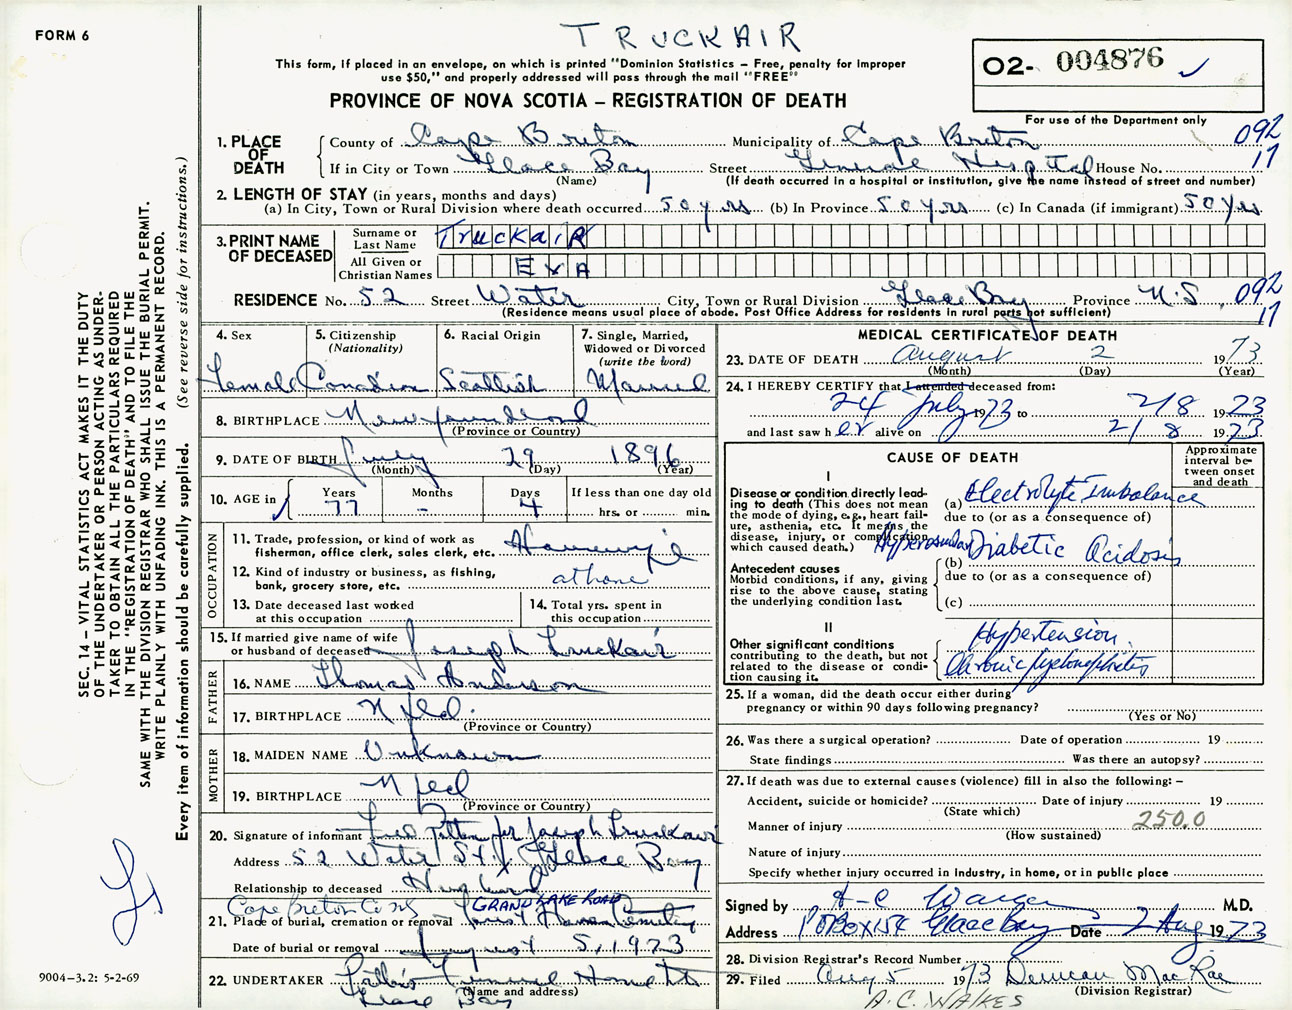 FORM 6
TRUCKAIR
This form, if placed in an envelope, on which is printed "Dominion Statistics – Free, penalty for improper
use $50," and properly addressed will pass through the mail "FREE"
PROVINCE OF NOVA SCOTIA – REGISTRATION OF DEATH
02- 004876 ✓
For use of the Department only
1. PLACE OF DEATH
County of Cape Breton Municipality of Cape Breton 092
If in City or Town Glace Bay Street General Hospital House No. 17
(Name) (If death occurred in a hospital or institution, give the name instead of street and number)
2. LENGTH OF STAY (in years, months and days)
(a) In City, Town or Rural Division where death occurred 50 yrs (b) In Province 50 yrs (c) In Canada (if immigrant) 50 yrs
3. PRINT NAME OF DECEASED
Surname or Last Name TruckaiR
All Given or Christian Names EVA
RESIDENCE No. 52 Street Water City, Town or Rural Division Glace Bay Province N.S. 092
(Residence means usual place of abode. Post Office Address for residents in rural parts not sufficient) 17
4. Sex
Female
5. Citizenship
(Nationality)
Canadian
6. Racial Origin
Scottish
7. Single, Married,
Widowed or Divorced
(write the word)
Married
8. BIRTHPLACE Newfoundland
(Province or Country)
9. DATE OF BIRTH July 29 1896
(Month) (Day) (Year)
10. AGE in Years 77 Months - Days 4 If less than one day old
hrs. or min.
OCCUPATION
11. Trade, profession, or kind of work as
fisherman, office clerk, sales clerk, etc. Housewife
12. Kind of industry or business, as fishing,
bank, grocery store, etc. at home
13. Date deceased last worked
at this occupation
14. Total yrs. spent in
this occupation
15. If married give name of wife
or husband of deceased Joseph Truckair
FATHER
16. NAME Thomas Anderson
17. BIRTHPLACE Nfld.
(Province or Country)
MOTHER
18. MAIDEN NAME Unknown
19. BIRTHPLACE Nfld
(Province or Country)
20. Signature of informant for Joseph Truckair
Address 52 Water St., Glace Bay
Relationship to deceased Husband
Cape Breton Co. GRAND LAKE ROAD
21. Place of burial, cremation or removal Forest Haven Cemetery
Date of burial or removal August 5, 1973
22. UNDERTAKER Funeral Home
(Name and address)
Glace Bay
MEDICAL CERTIFICATE OF DEATH
23. DATE OF DEATH August 2 1973
(Month) (Day) (Year)
24. I HEREBY CERTIFY that I attended deceased from:
24 July 1973 to 2/8 1973
and last saw her alive on 2/8 1973
CAUSE OF DEATH
Approximate
interval be-
tween onset
and death
I
Disease or condition directly lead-
ing to death (This does not mean
the mode of dying, e.g., heart fail-
ure, asthenia, etc. It means the
disease, injury, or complication
which caused death.)
(a) Electrolyte Imbalance
due to (or as a consequence of)
Hyperosmolar Diabetic Acidosis
(b)
Antecedent causes
Morbid conditions, if any, giving
rise to the above cause, stating
the underlying condition last.
due to (or as a consequence of)
(c)
II
Other significant conditions
contributing to the death, but not
related to the disease or condi-
tion causing it.
Hypertension.
Chronic Pyelonephritis
25. If a woman, did the death occur either during
pregnancy or within 90 days following pregnancy?
(Yes or No)
26. Was there a surgical operation? Date of operation 19
State findings Was there an autopsy?
27. If death was due to external causes (violence) fill in also the following: –
Accident, suicide or homicide? Date of injury 19
(State which)
250.0
Manner of injury
(How sustained)
Nature of injury
Specify whether injury occurred in industry, in home, or in public place
Signed by M.D.
Address PO BOX 154 Glace Bay Date 2 Aug 1973
28. Division Registrar's Record Number
29. Filed Aug 5 1973 Duncan MacRae
(Division Registrar)
A.C. WALKES
SEC. 14 – VITAL STATISTICS ACT MAKES IT THE DUTY
OF THE UNDERTAKER OR PERSON ACTING AS UNDER-
TAKER TO OBTAIN ALL THE PARTICULARS REQUIRED
IN THE "REGISTRATION OF DEATH" AND TO FILE THE
SAME WITH THE DIVISION REGISTRAR WHO SHALL ISSUE THE BURIAL PERMIT.
WRITE PLAINLY WITH UNFADING INK. THIS IS A PERMANENT RECORD.
Every item of information should be carefully supplied. (See reverse side for instructions.)
9004-3.2: 5-2-69